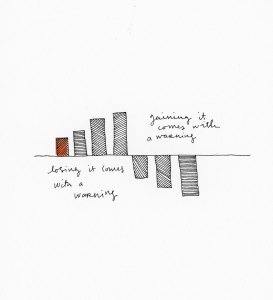 gaining it
comes with
a warning
losing it comes
with a
warning